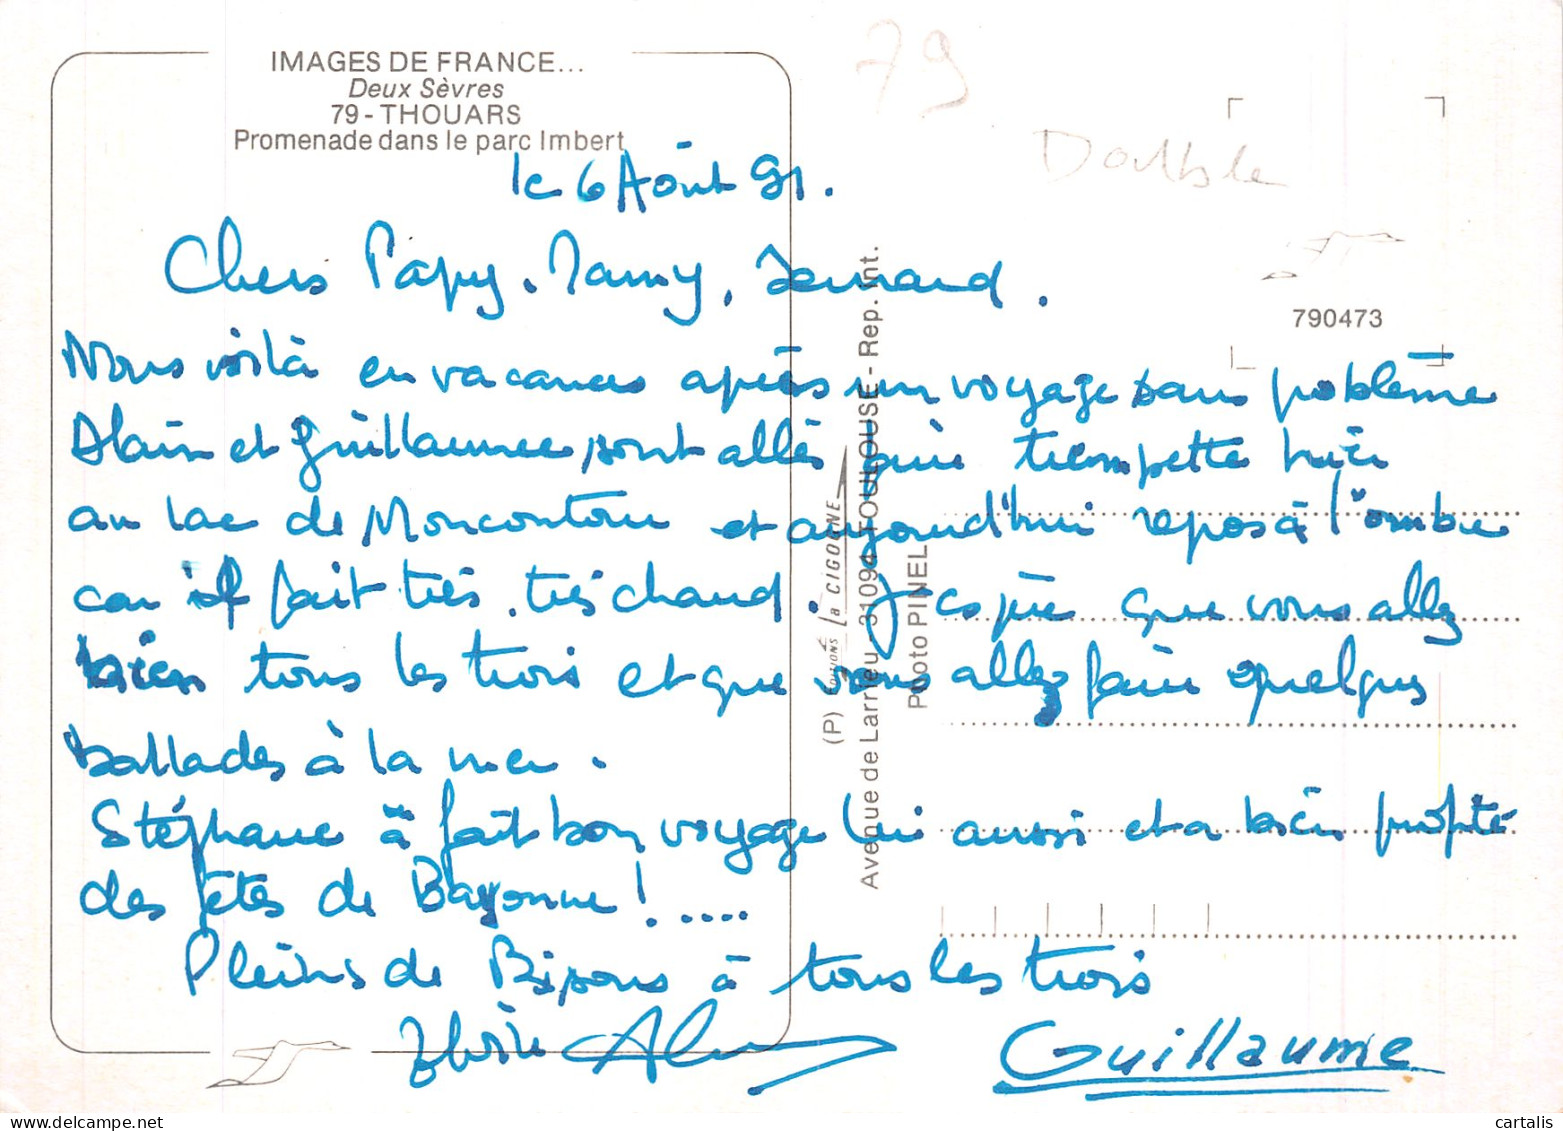 IMAGES DE FRANCE...
Deux Sèvres
79 - THOUARS
Promenade dans le parc Imbert
79
Double
790473
le 6 Août 91.
Chers Papy, Mamy,
Nous voilà en vacances après un voyage sans problème
Alain et Guillaume sont allés faire trempette hier
au lac de Moncontour et aujourd'hui repos à l'ombre
car il fait très, très chaud. J'espère que vous allez
bien tous les trois et que vous allez faire quelques
ballades à la mer.
Stéphane à fait bon voyage lui aussi et a bien profité
des fêtes de Bayonne! ....
Pleins de Bisous à tous les trois
Alain
Guillaume
(P) EDITIONS la CIGOGNE
Avenue de Larrieu - 31094 TOULOUSE - Rep. int.
Photo PINEL
www.delcampe.net
cartalis